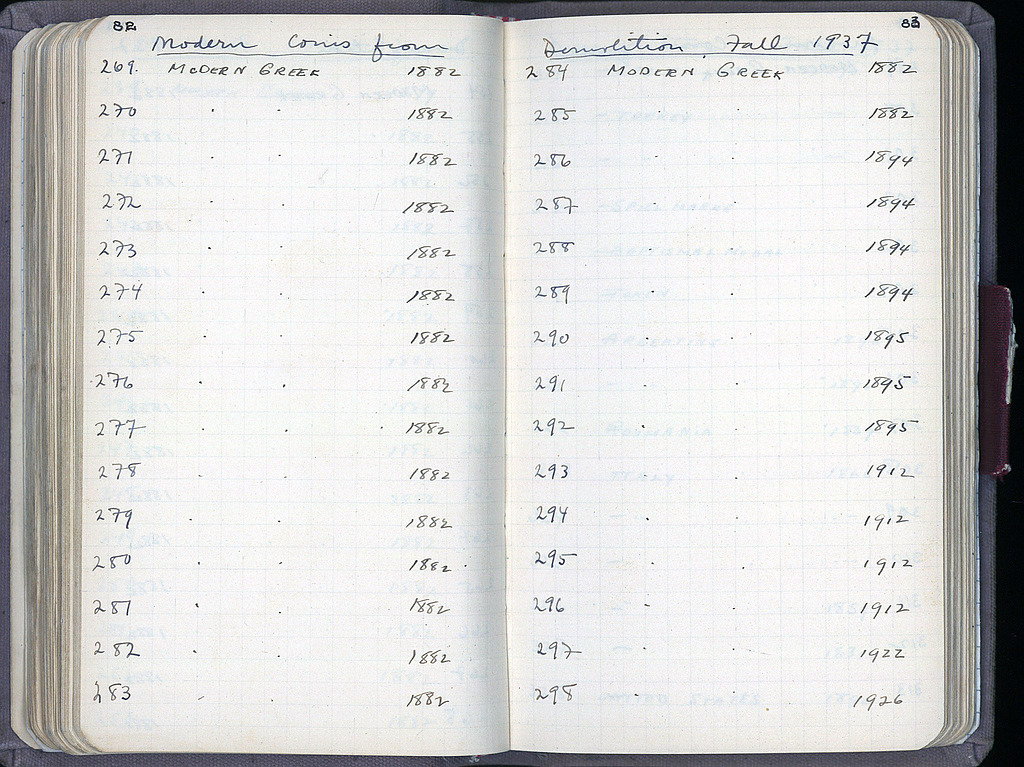 82
Modern Coins from
269. MODERN GREEK 1882
270 " " 1882
271 " " 1882
272 " " 1882
273 " " 1882
274 " " 1882
275 " " 1882
276 " " 1882
277 " " 1882
278 " " 1882
279 " " 1882
280 " " 1882
281 " " 1882
282 " " 1882
283 " " 1882
83
Demolition, Fall 1937
284 MODERN GREEK 1882
285 " " 1882
286 " " 1894
287 " " 1894
288 " " 1894
289 " " 1894
290 " " 1895
291 " " 1895
292 " " 1895
293 " " 1912
294 " " 1912
295 " " 1912
296 " " 1912
297 " " 1922
298 " " 1926